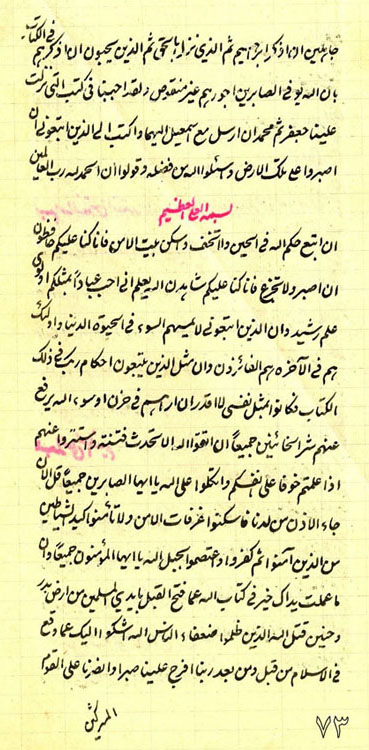 جاعلين ان اذكر ابراهيم ثم الذي نزل باسحق ثم الذين يسجنون ان اذكرهم في الكتاب
بان الله يوفي الصابرين اجورهم غير منقوص ولقد احببنا في كتب التي نزلت
علينا جعفر ثم محمد ان ارسل مع سمعيل اليهما واكتب الى الذين اتبعوني ان
اصبروا على تلك الارض وسئلوا الله من فضله وقولوا ان الحمد لله رب العالمين
بسم الله العلي العظيم
ان اتبع حكم الله في الحين ولا تخف وسكن بيت الامن فانا كنا عليكم حافظون
ان اصبر ولا تجزع فانا كنا عليكم شاهدين الله يعلم اني احب عباداً بمثلكم
علم رشيد وان الذين اتبعوني لا يمسهم السوء في الحيوة الدنيا واولئك
هم في الآخرة هم الفائزون وان مثل الذين يتبعون احكام ربك في ذلك
الكتاب فكانوا بمثل نفسي لا اقدر ان اراهم في حزن او سوء الله يرفع
عنهم شر الخائنين جميعاً ان اتقوا الله لا تستحدث فتنة واستتروا عنهم
اذا علمتم خوفا على انفسكم واتكلوا على الله يا ايها الصابرين جميعاً قل الان
جاء الاذن من لدنا فاسكنوا غرفات الامن ولا تأمنوا كيد الشياطين
من الذين آمنوا ثم كفروا واعتصموا بحبل الله يا ايها المؤمنون جميعاً وان
ما عملت يداك خير في كتاب الله عما فتح القبل بايدي المسلمين من ارض بدر
وحنين قتل الله الذين ظلموا ضعفاء الناس الله شكوا اليك عما وقع
في الاسلام من قبل ومن بعد ربنا افرغ علينا صبرا وانصرنا على القوم
المشركين
٧٣